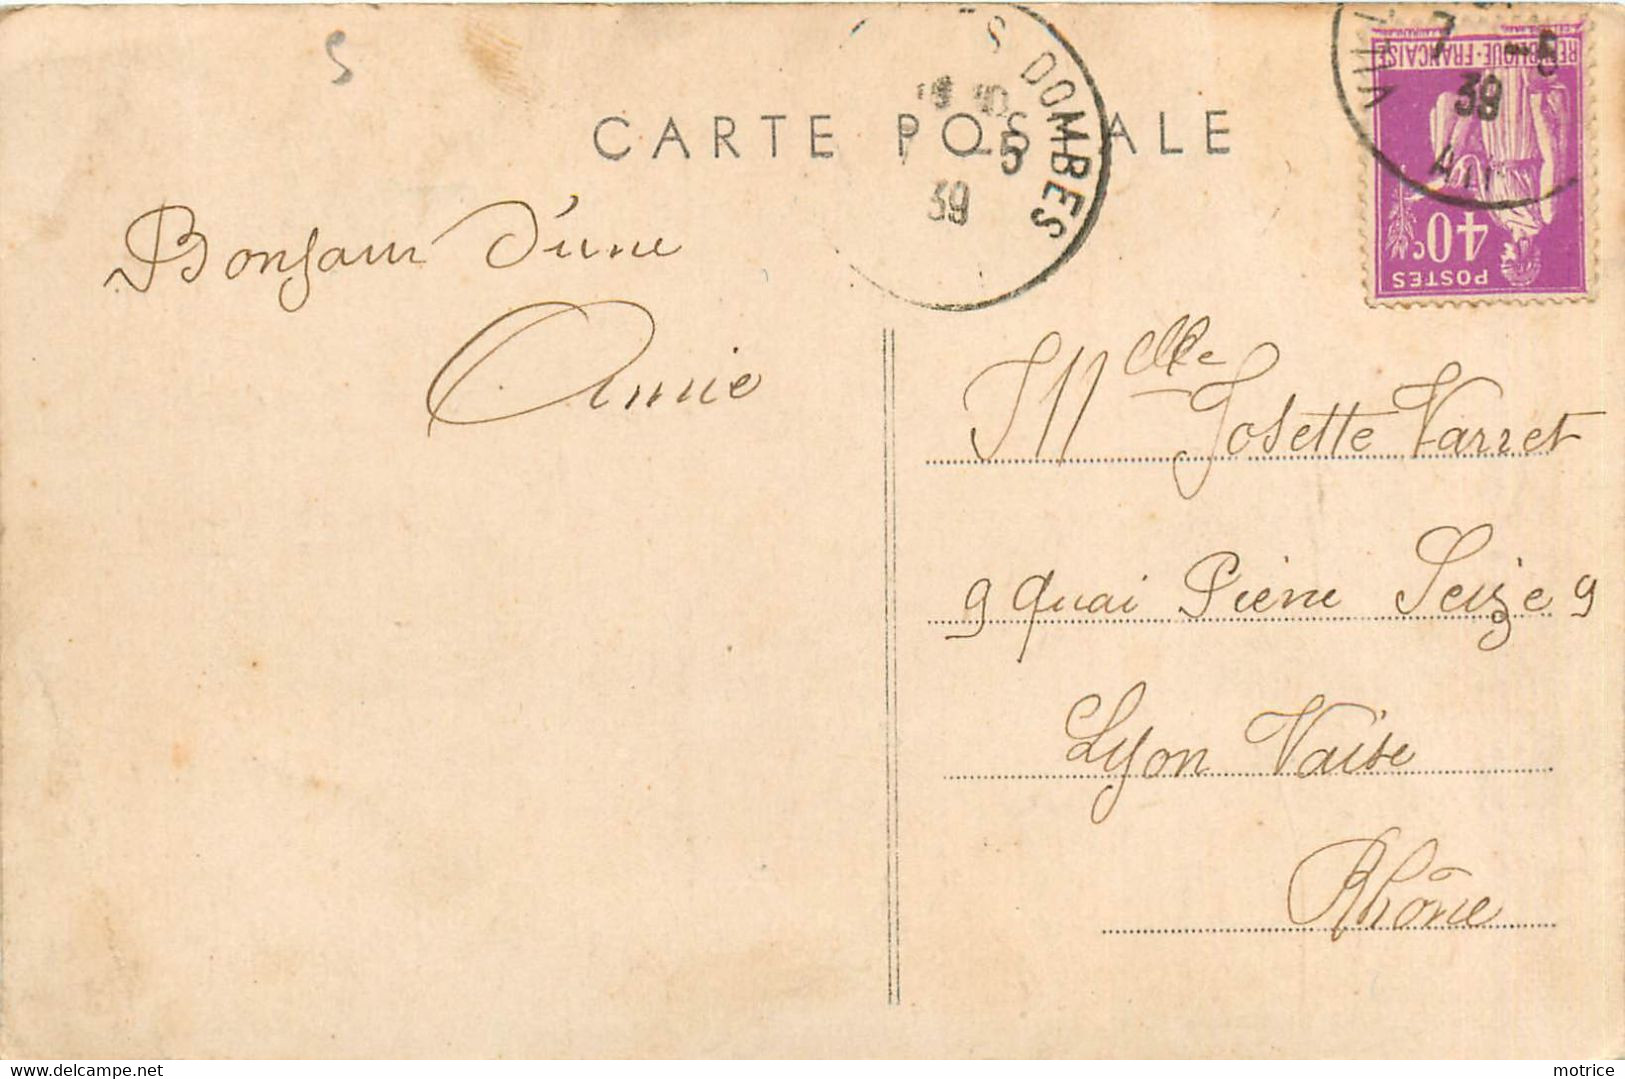 S
CARTE POSTALE
S DOMBES
5
39
VILL
7 -5
39
AIN
REPUBLIQUE-FRANÇAISE
40c
POSTES
Bonjour d'une
Amie
Mlle Josette Varret
9 Quai Pierre Seize 9
Lyon Vaise
Rhône
www.delcampe.net
motrice